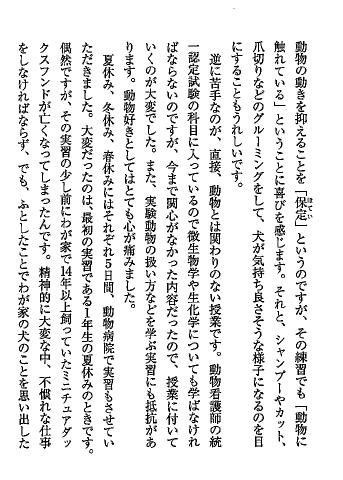 動物の動きを抑えることを「保定」というのですが、その練習でも「動物に
ほてい
触れている」ということに喜びを感じます。それと、シャンプーやカット、
爪切りなどのグルーミングをして、犬が気持ち良さそうな様子になるのを目
にすることもうれしいです。
逆に苦手なのが、直接、動物とは関わりのない授業です。動物看護師の統
一認定試験の科目に入っているので微生物学や生化学についても学ばなけれ
ばならないのですが、今まで関心がなかった内容だったので、授業に付いて
いくのが大変でした。また、実験動物の扱い方などを学ぶ実習にも抵抗があ
ります。動物好きとしてはとても心が痛みました。
夏休み、冬休み、春休みにはそれぞれ5日間、動物病院で実習もさせてい
ただきました。大変だったのは、最初の実習である1年生の夏休みのときです。
偶然ですが、その実習の少し前にわが家で14年以上飼っていたミニチュアダッ
クスフンドが亡くなってしまったんです。精神的に大変な中、不慣れな仕事
をしなければならず、でも、ふとしたことでわが家の犬のことを思い出した